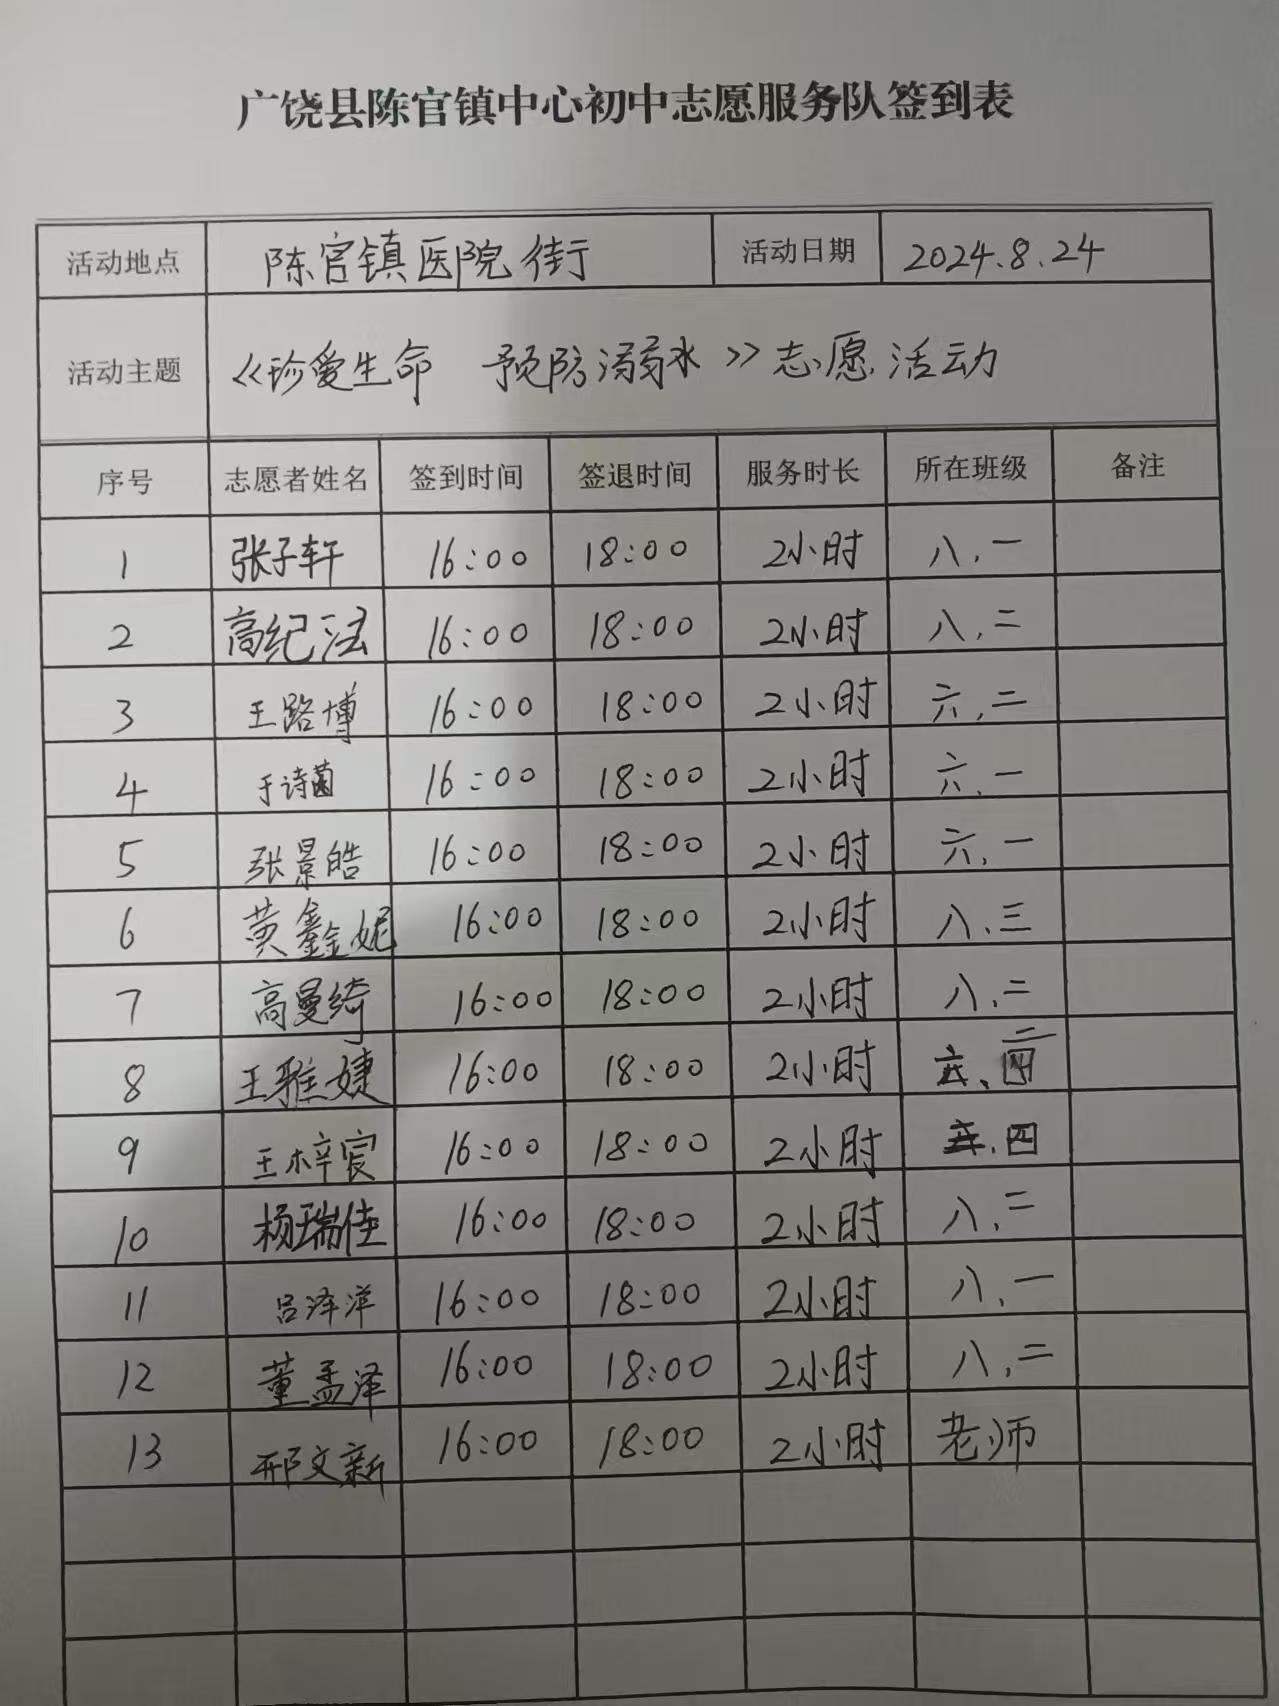 广饶县陈官镇中心初中志愿服务队签到表
活动地点 陈官镇医院街 活动日期 2024.8.24
活动主题 《珍爱生命 预防溺水》志愿活动
序号 志愿者姓名 签到时间 签退时间 服务时长 所在班级 备注
1 张子轩 16:00 18:00 2小时 八.一
2 高纪法 16:00 18:00 2小时 八.二
3 王路博 16:00 18:00 2小时 六.二
4 于诗茵 16:00 18:00 2小时 六.一
5 张景皓 16:00 18:00 2小时 六.一
6 黄鑫妮 16:00 18:00 2小时 八.三
7 高曼绮 16:00 18:00 2小时 八.二
8 王雅婕 16:00 18:00 2小时
9 王梓宸 16:00 18:00 2小时 四
10 杨瑞佳 16:00 18:00 2小时 八.二
11 吕泽洋 16:00 18:00 2小时 八.一
12 董孟泽 16:00 18:00 2小时 八.二
13 邢文新 16:00 18:00 2小时 老师